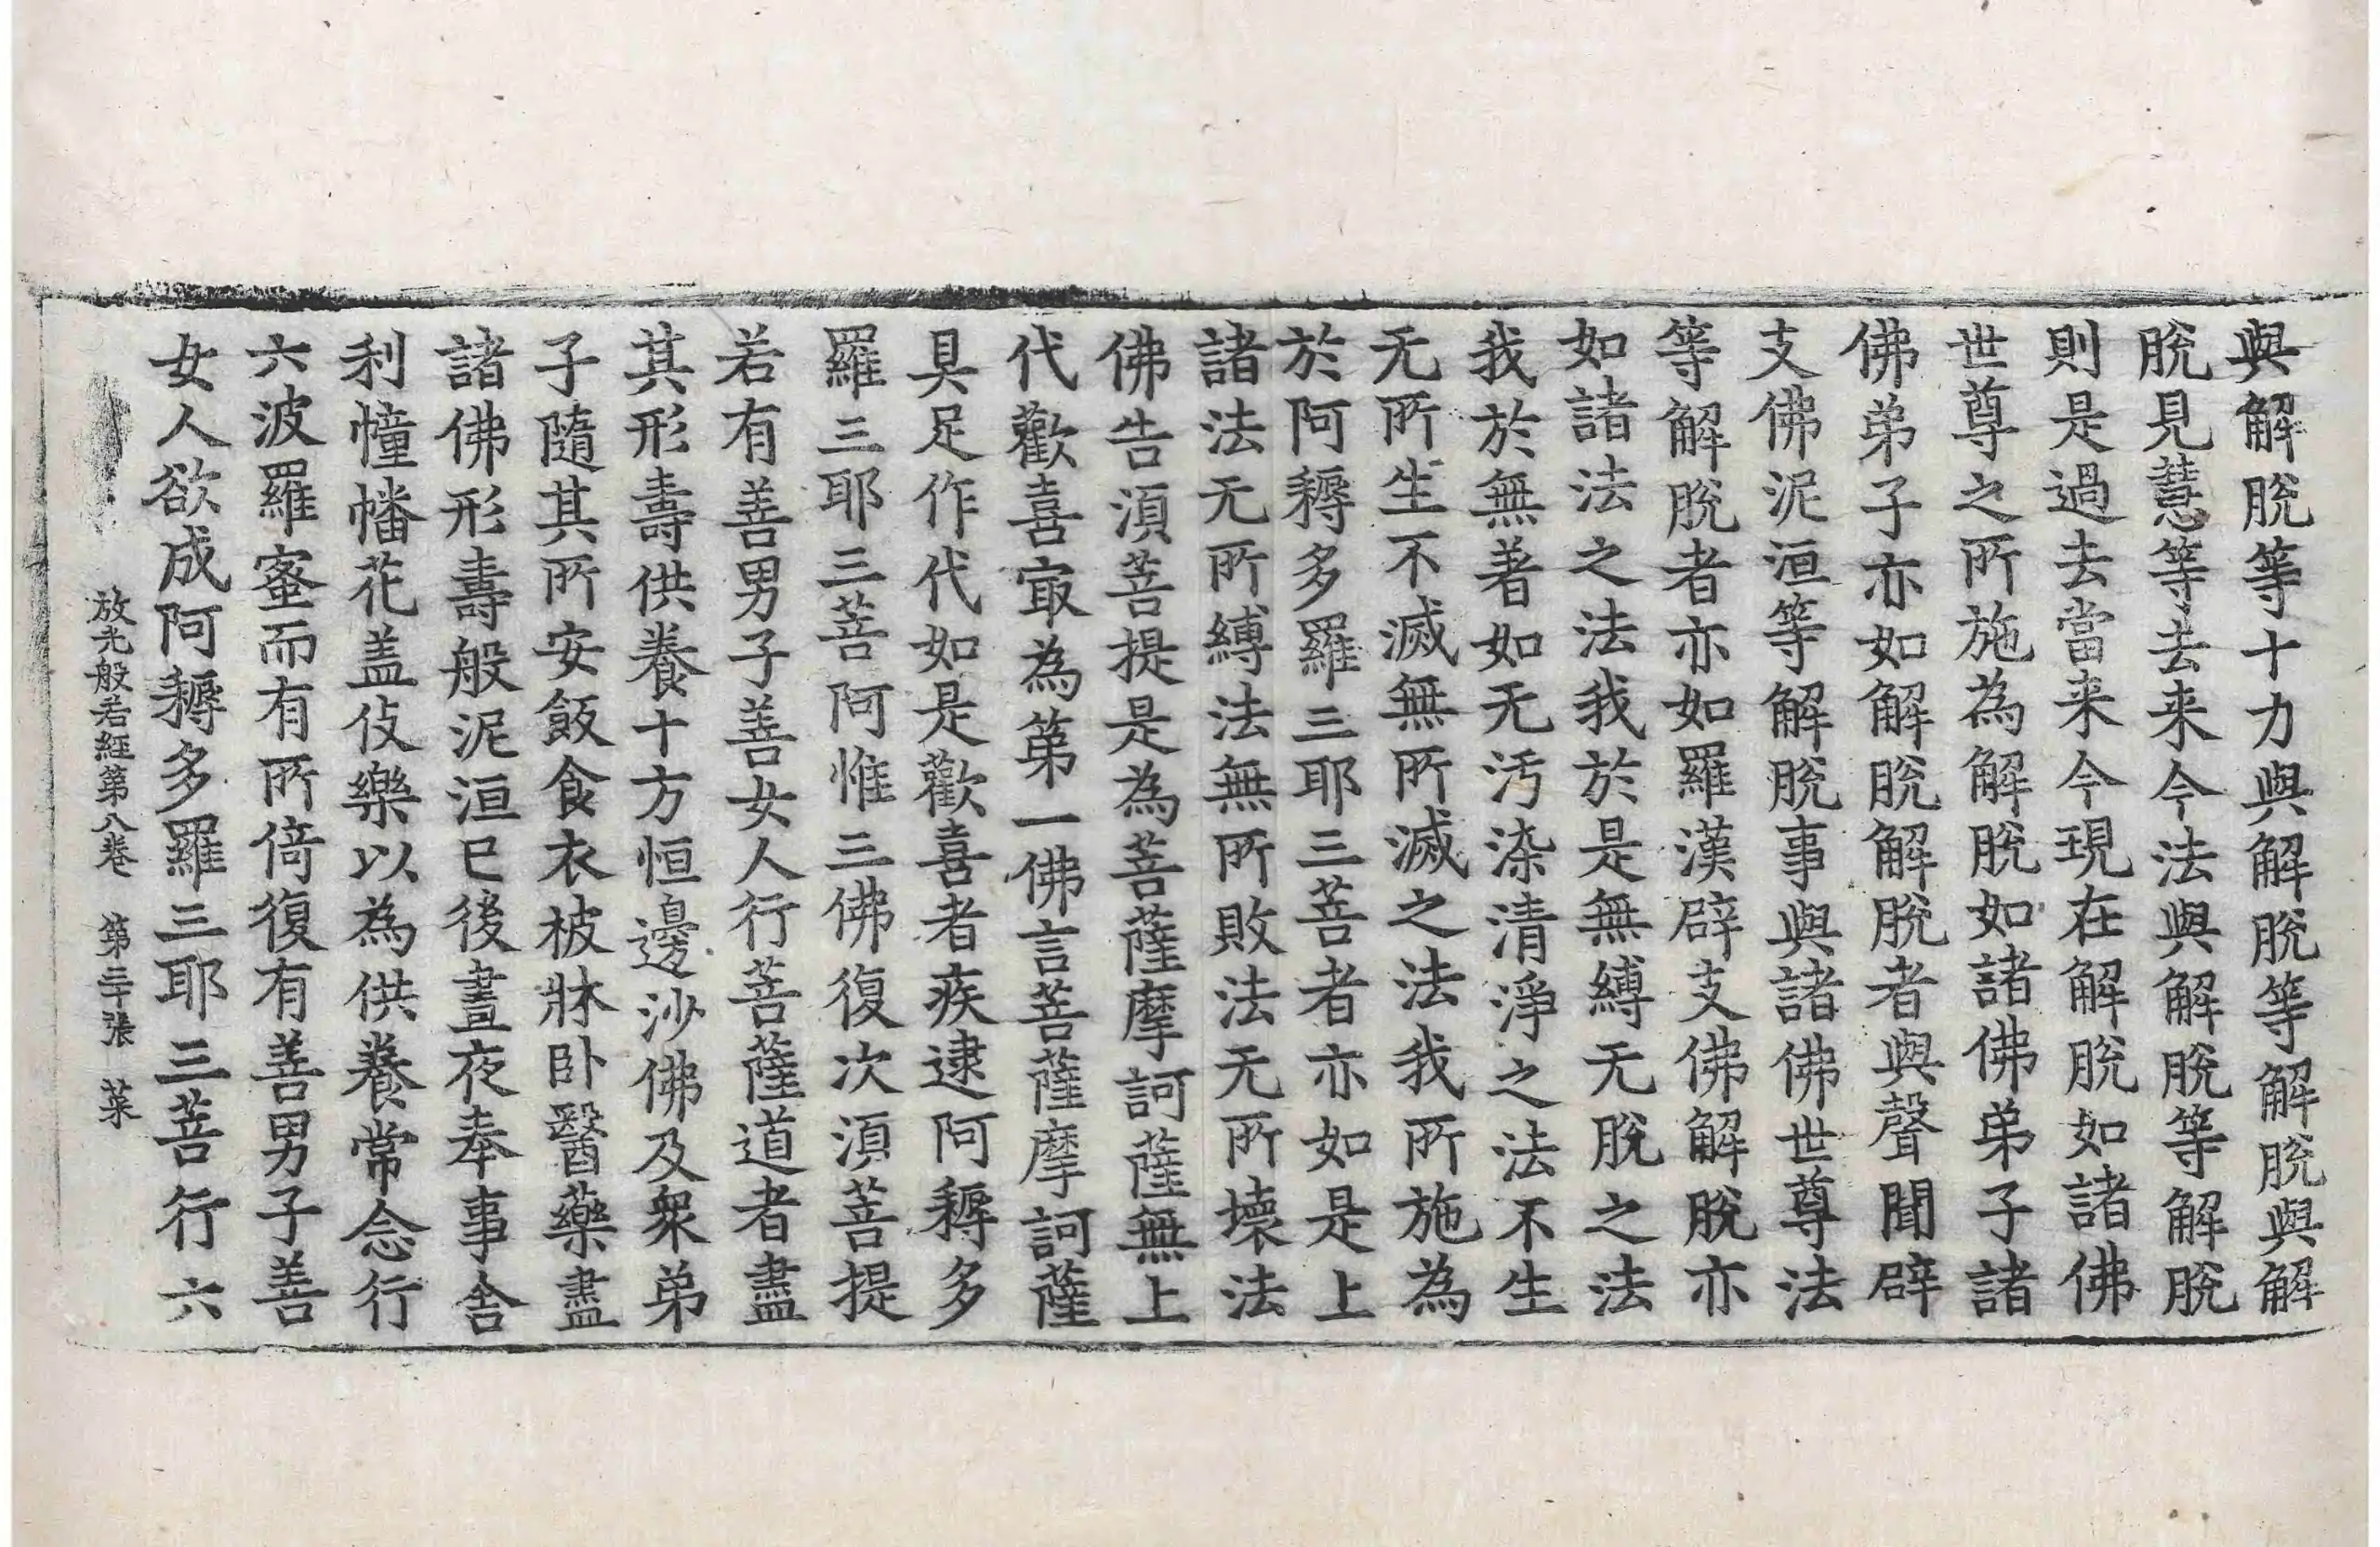 與解脫等十力與解脫等解脫與解
脫見慧等去来今法與解脫等解脫
則是過去當来今現在解脫如諸佛
世尊之所施為解脫如諸佛弟子諸
佛弟子亦如解脫解脫者與聲聞辟
支佛泥洹等解脫事與諸佛世尊法
等解脫者亦如羅漢辟支佛解脫亦
如諸法之法我於是無縛无脫之法
我於無著如无汚染清淨之法不生
无所生不滅無所滅之法我所施為
於阿耨多羅三耶三菩者亦如是上
諸法无所縛法無所敗法无所壞法
佛告湏菩提是為菩薩摩訶薩無上
代歡喜㝡為第一佛言菩薩摩訶薩
具足作代如是歡喜者疾逮阿耨多
羅三耶三菩阿惟三佛復次湏菩提
若有善男子善女人行菩薩道者盡
其形壽供養十方恒邊沙佛及衆弟
子隨其所安飯食衣被牀卧醫藥盡
諸佛形壽般泥洹已後晝夜奉事舍
利幢幡花盖伎樂以為供養常念行
六波羅蜜而有所倚復有善男子善
女人欲成阿耨多羅三耶三菩行六
放光般若經第八卷 第二十張 菜